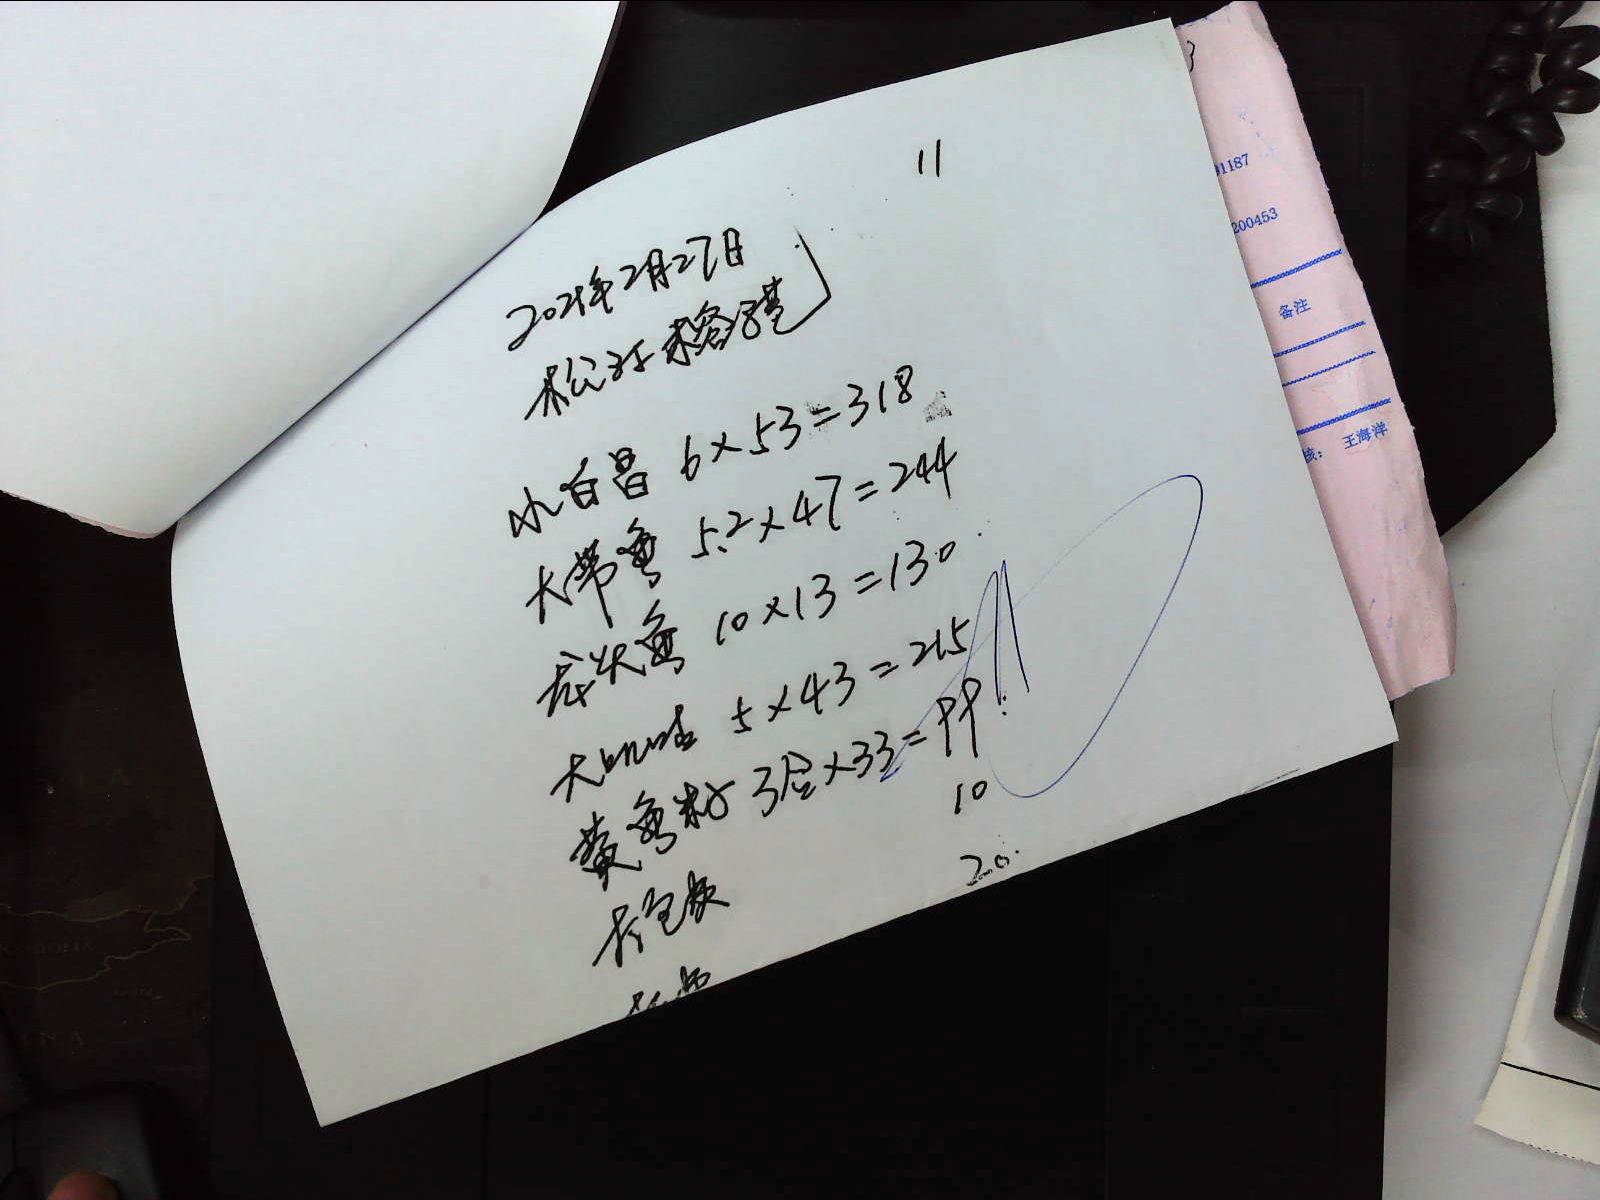 11
2021年2月27日
松江
小白昌 6×53=318
大带鱼 5.2×47=244
龙头鱼 10×13=130
大 5×43=215
黄鱼籽 3合×33=99
10
20.
3
01187
200453
备注
核: 王海洋